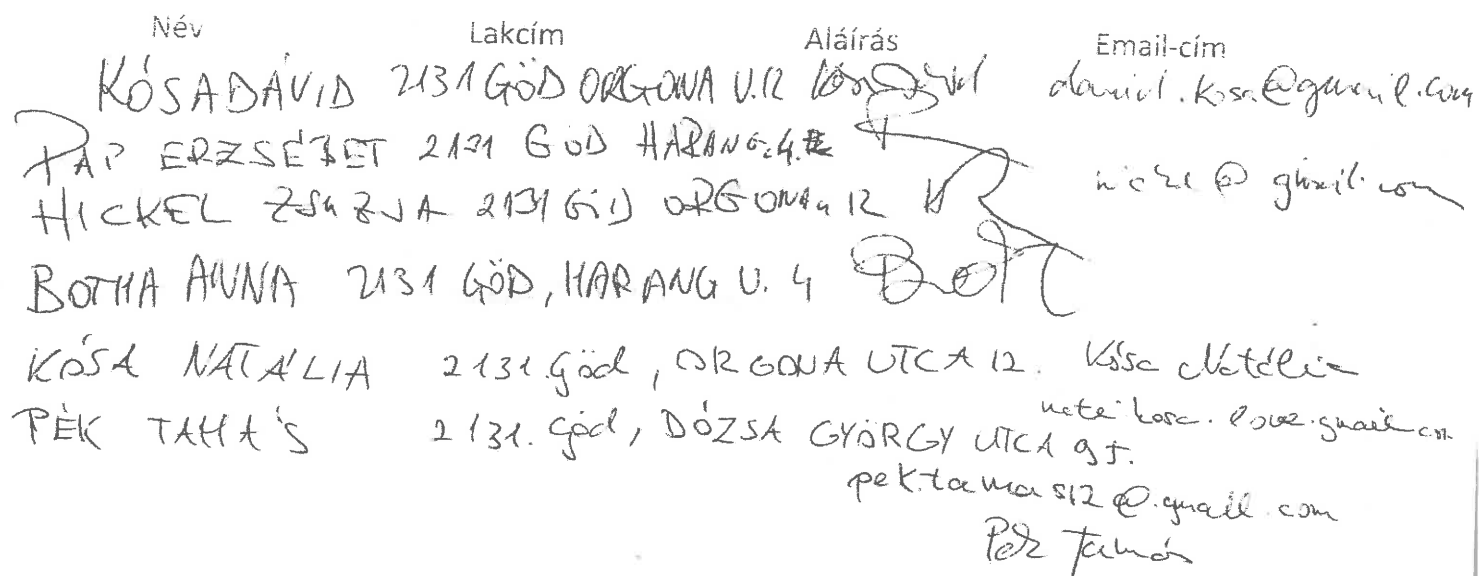 Név Lakcím Aláírás Email-cím
KÓSA DÁVID 2131 GÖD ORGONA U. 12 Kósa Dávid
PAP ERZSÉBET 2131 GÖD HARANG. 4.
HICKEL ZSUZSA 2131 GÖD ORGONA u 12
BOTHA ANNA 2131 GÖD, HARANG U. 4 Both
KÓSA NATÁLIA 2131. Göd, ORGONA UTCA 12. Kósa Natália
PÉK TAMÁS 2131. Göd, DÓZSA GYÖRGY UTCA 95.
pek.tamas12@gmail.com
Pék Tamás